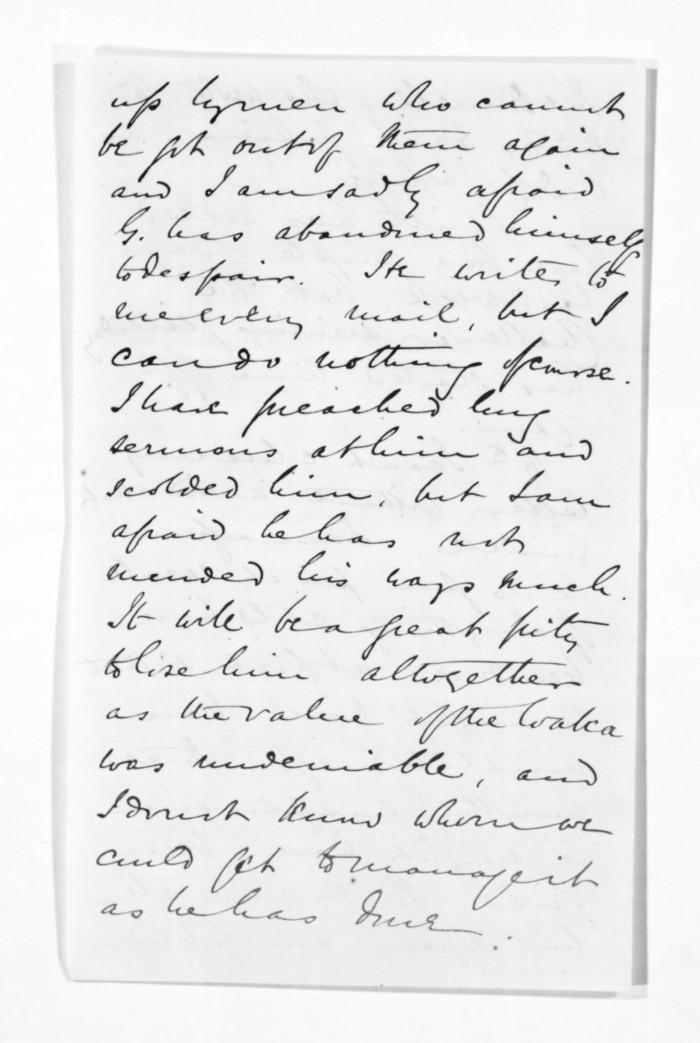 up by men who cannot
be got out of them again
and I am sadly afraid
G. has abandoned himself
to despair. He writes to
me every mail, but I
can do nothing of course.
I have preached long
sermons at him and
scolded him, but I am
afraid he has not
mended his ways much.
It will be a great pity
to lose him altogether
as the value of the Waka
was undeniable, and
I do not know whom we
could get to manage it
as he has done.